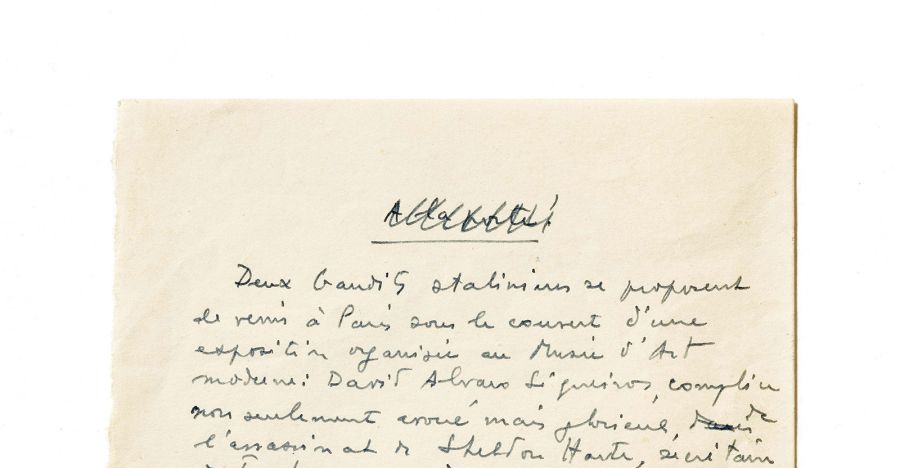 A la porte!
Deux bandits staliniens se proposent
de venir à Paris sous le couvert d'une
exposition organisée au Musée d'Art
moderne: David Alvaro Siqueiros, complice
non seulement avoué mais glorieux, dans de
l'assassinat de Sheldon Harte, secrétaire